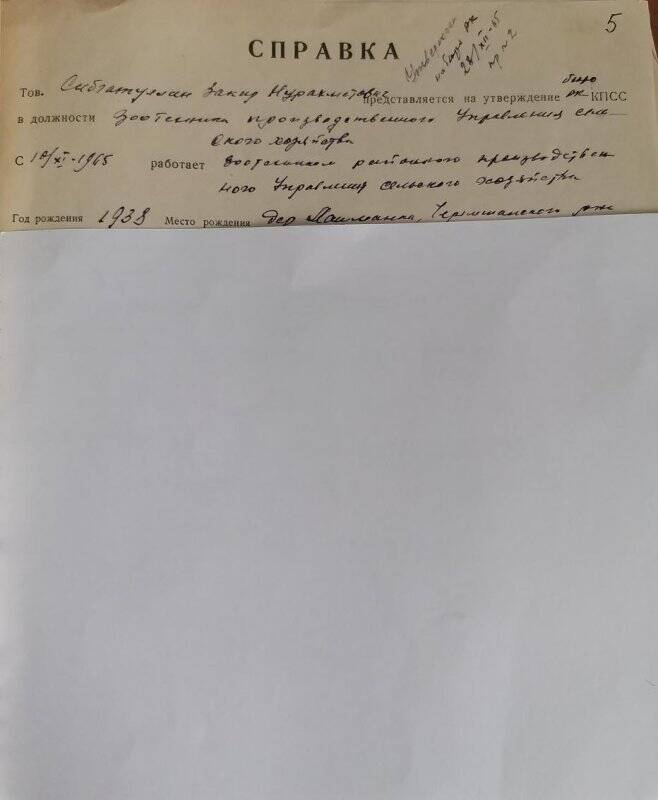 5
СПРАВКА
Утвержден
на бюро РК
28/XII-65
пр №2
Тов. Сибгатуллин Закид Нурахметович представляется на утверждение бюро РК КПСС
в должности Зоотехника производственного Управления сель
ского хозяйства
С 10/XI-1965 работает зоотехником районного производствен
ного Управления сельского хозяйства
Год рождения 1938 Место рождения дер Лашманка, Черемшанского р-на